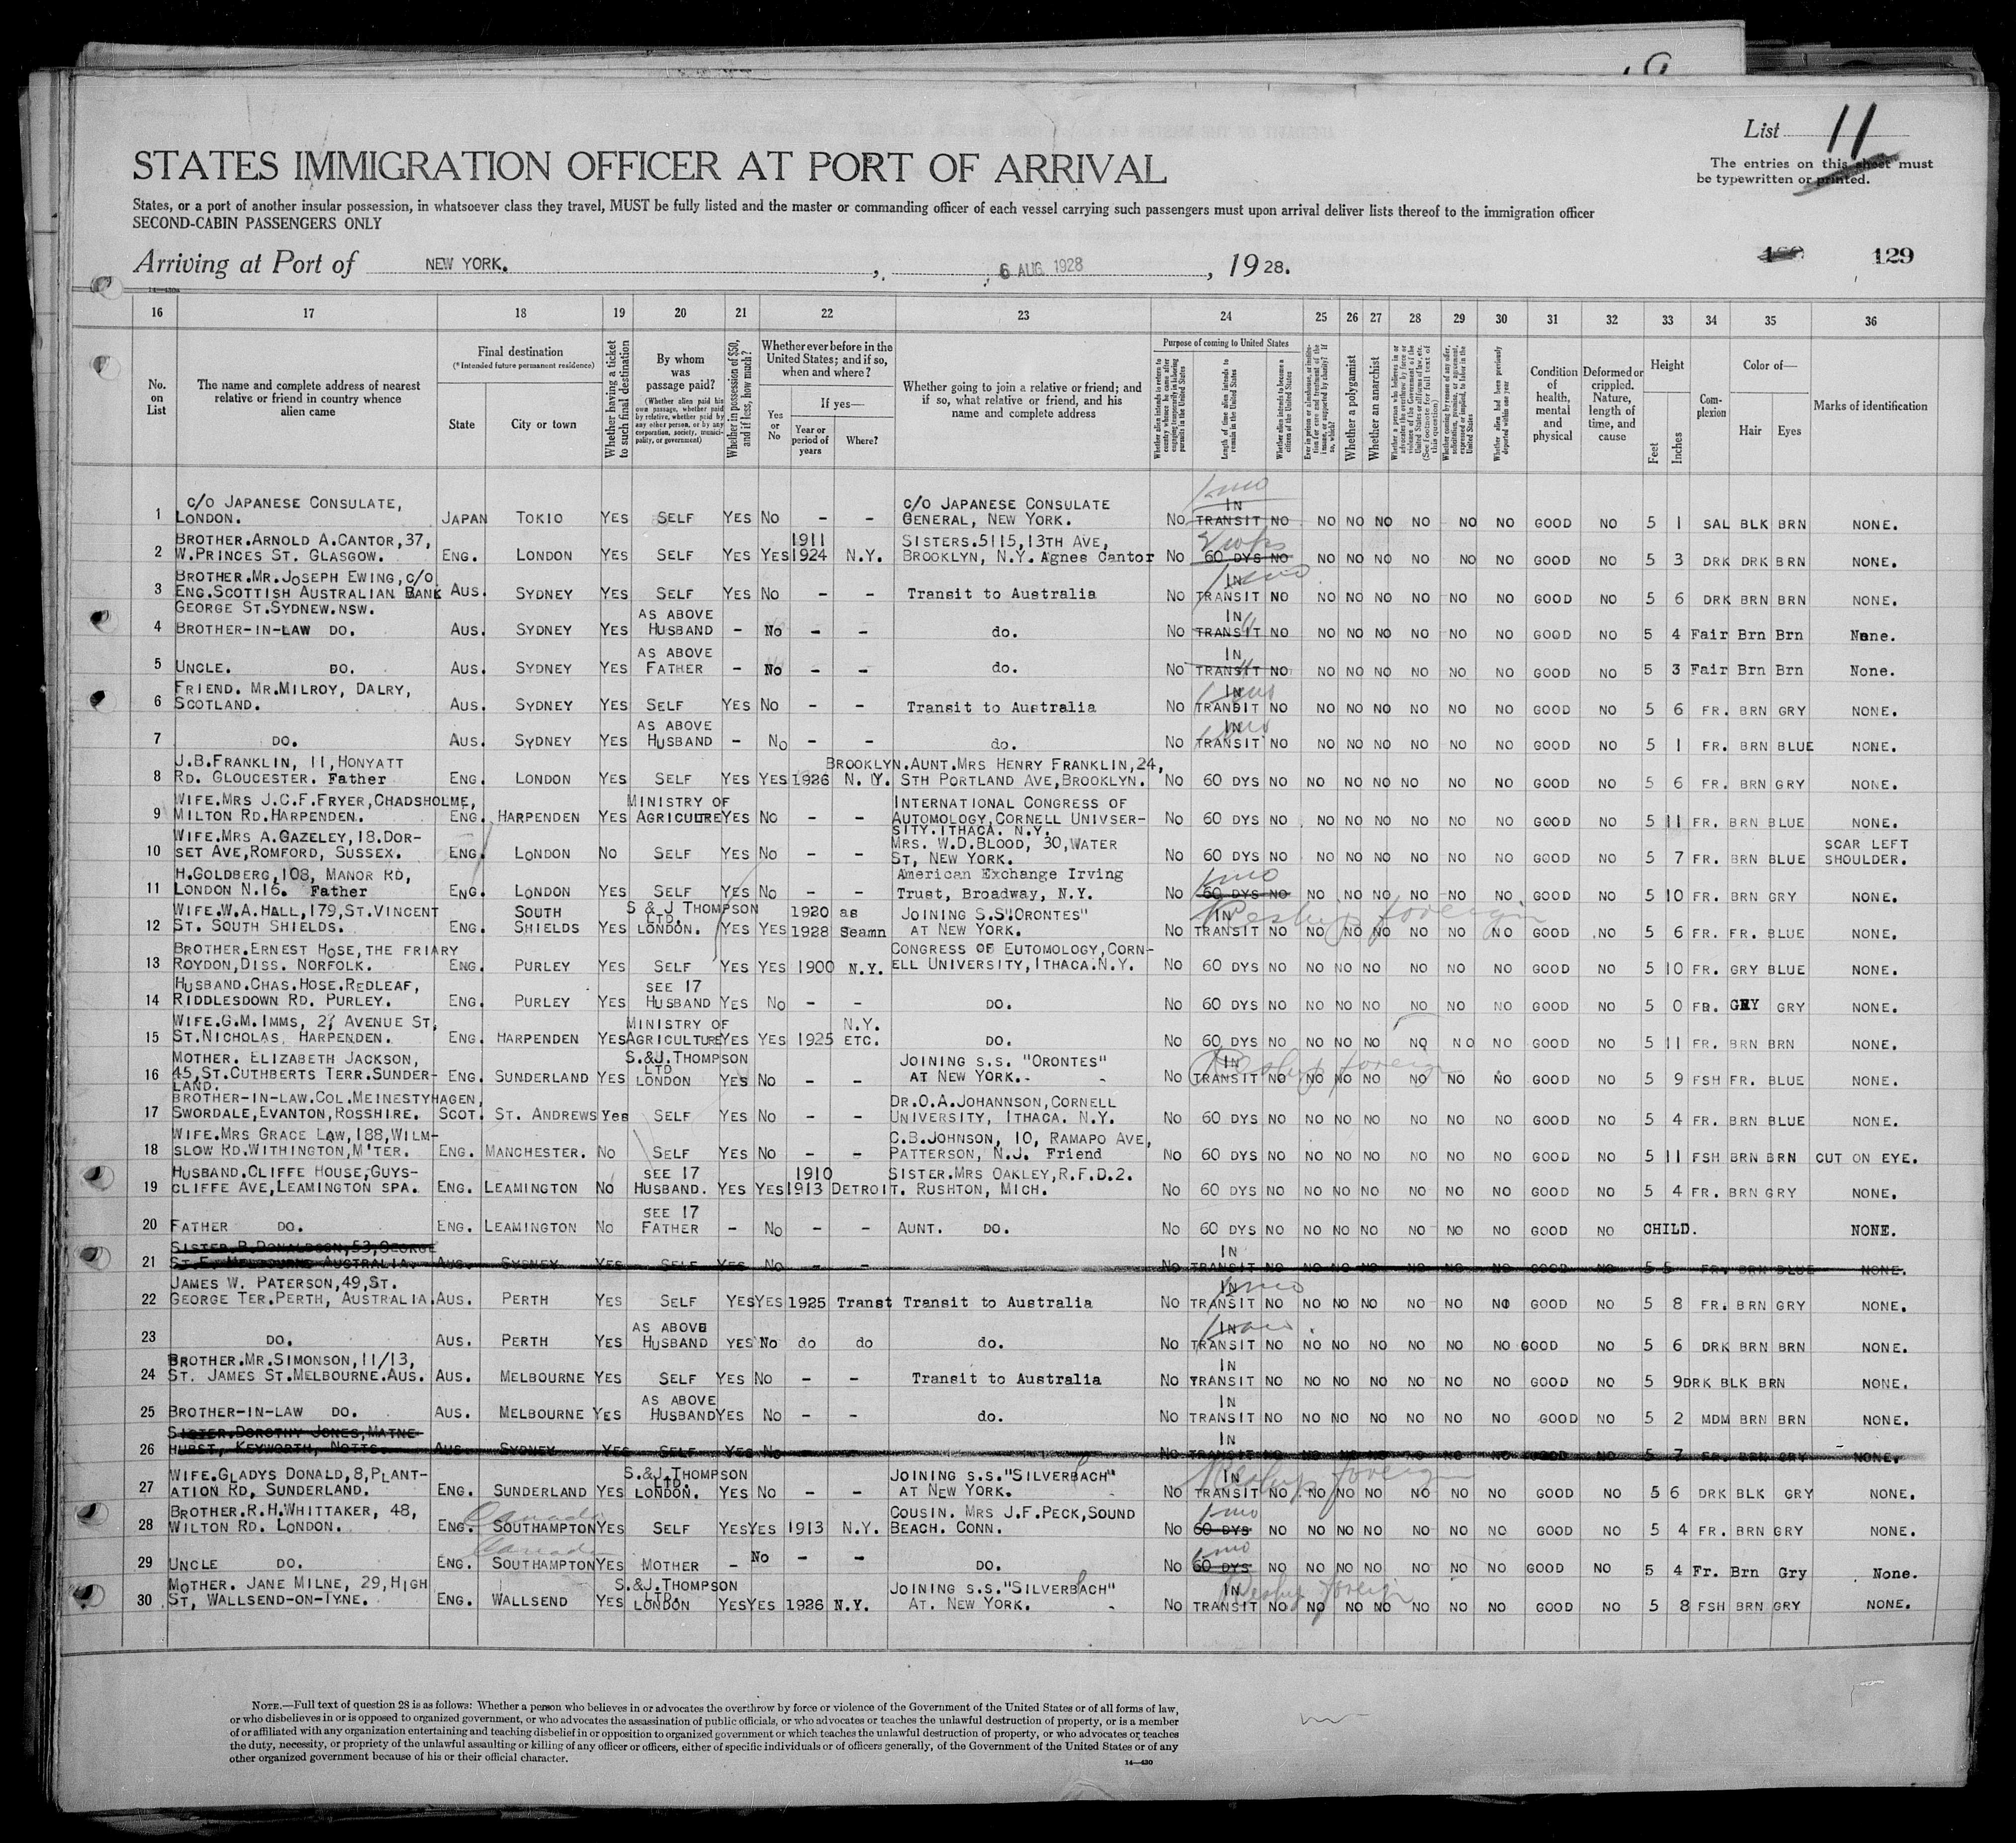 List 11
STATES IMMIGRATION OFFICER AT PORT OF ARRIVAL
The entries on this sheet must
be typewritten or printed.
States, or a port of another insular possession, in whatsoever class they travel, MUST be fully listed and the master or commanding officer of each vessel carrying such passengers must upon arrival deliver lists thereof to the immigration officer
SECOND-CABIN PASSENGERS ONLY
Arriving at Port of NEW YORK. , 6 AUG 1928 , 1928.
129
16 17 18 19 20 21 22 23 24 25 26 27 28 29 30 31 32 33 34 35 36
No. on List
The name and complete address of nearest relative or friend in country whence alien came
Final destination
(*Intended future permanent residence)
State
City or town
Whether having a ticket to such final destination
By whom was passage paid?
(Whether alien paid his own passage, whether paid by relative, whether paid by any other person, or by any corporation, society, municipality, or government)
Whether in possession of $50, and if less, how much?
Whether ever before in the United States; and if so, when and where?
Yes or No
If yes—
Year or period of years
Where?
Whether going to join a relative or friend; and if so, what relative or friend, and his name and complete address
Purpose of coming to United States
Length of time alien intends to remain in the United States
Whether alien intends to become a citizen of the United States
Whether a polygamist
Whether an anarchist
Whether alien had been previously deported within one year
Condition of health, mental and physical
Deformed or crippled. Nature, length of time, and cause
Height
Feet
Inches
Complexion
Color of—
Hair
Eyes
Marks of identification
1 C/O JAPANESE CONSULATE, LONDON. JAPAN TOKIO YES SELF YES NO - - C/O JAPANESE CONSULATE GENERAL, NEW YORK. NO IN TRANSIT NO NO NO NO NO NO NO GOOD NO 5 1 SAL BLK BRN NONE.
2 BROTHER.ARNOLD A.CANTOR,37, W.PRINCES ST. GLASGOW. ENG. LONDON YES SELF YES YES 1911 1924 N.Y. SISTERS.5115,13TH AVE, BROOKLYN, N.Y. Agnes Cantor NO 60 DYS NO NO NO NO NO NO NO GOOD NO 5 3 DRK DRK BRN NONE.
3 BROTHER.MR.JOSEPH EWING,C/O ENG.SCOTTISH AUSTRALIAN BANK GEORGE ST.SYDNEW.NSW. AUS. SYDNEY YES SELF YES NO - - Transit to Australia NO IN TRANSIT NO NO NO NO NO NO NO GOOD NO 5 6 DRK BRN BRN NONE.
4 BROTHER-IN-LAW DO. AUS. SYDNEY YES AS ABOVE HUSBAND - No - - do. NO IN TRANSIT NO NO NO NO NO NO NO GOOD NO 5 4 Fair Brn Brn None.
5 UNCLE. DO. AUS. SYDNEY YES AS ABOVE FATHER - No - - do. NO IN TRANSIT NO NO NO NO NO NO NO GOOD NO 5 3 Fair Brn Brn None.
6 FRIEND. MR.MILROY, DALRY, SCOTLAND. AUS. SYDNEY YES SELF YES NO - - Transit to Australia NO IN TRANSIT NO NO NO NO NO NO NO GOOD NO 5 6 FR. BRN GRY NONE.
7 DO. AUS. SYDNEY YES AS ABOVE HUSBAND - NO - - do. NO IN TRANSIT NO NO NO NO NO NO NO GOOD NO 5 1 FR. BRN BLUE NONE.
8 J.B.FRANKLIN, 11, HONYATT RD. GLOUCESTER. Father ENG. LONDON YES SELF YES YES 1926 N.Y. BROOKLYN.AUNT.MRS HENRY FRANKLIN,24, STH PORTLAND AVE,BROOKLYN. NO 60 DYS NO NO NO NO NO NO NO GOOD NO 5 6 FR. BRN GRY NONE.
9 WIFE.MRS J.C.F.FRYER,CHADSHOLME, MILTON RD.HARPENDEN. ENG. HARPENDEN YES MINISTRY OF AGRICULTRE YES NO - - INTERNATIONAL CONGRESS OF AUTOMOLOGY,CORNELL UNIVSERSITY.ITHACA. N.Y. NO 60 DYS NO NO NO NO NO NO NO GOOD NO 5 11 FR. BRN BLUE NONE.
10 WIFE.MRS A.GAZELEY,18.DORSET AVE,ROMFORD, SUSSEX. ENG. LONDON NO SELF YES NO - - MRS. W.D.BLOOD, 30,WATER ST, NEW YORK. NO 60 DYS NO NO NO NO NO NO NO GOOD NO 5 7 FR. BRN BLUE SCAR LEFT SHOULDER.
11 H.GOLDBERG,108, MANOR RD, LONDON N.16. Father ENG. LONDON YES SELF YES NO - - American Exchange Irving Trust, Broadway, N.Y. NO 60 DYS NO NO NO NO NO NO NO GOOD NO 5 10 FR. BRN GRY NONE.
12 WIFE.W.A.HALL,179,ST.VINCENT ST. SOUTH SHIELDS. ENG. SOUTH SHIELDS YES S & J THOMPSON LTD. LONDON. YES YES 1920 1928 as Seamn JOINING S.S"ORONTES" AT NEW YORK. NO IN TRANSIT NO Reship foreign NO NO NO NO NO NO GOOD NO 5 6 FR. FR. BLUE NONE.
13 BROTHER.ERNEST HOSE,THE FRIARY ROYDON,DISS. NORFOLK. ENG. PURLEY YES SELF YES YES 1900 N.Y. CONGRESS OF EUTOMOLOGY,CORNELL UNIVERSITY,ITHACA.N.Y. NO 60 DYS NO NO NO NO NO NO NO GOOD NO 5 10 FR. GRY BLUE NONE.
14 HUSBAND.CHAS.HOSE.REDLEAF, RIDDLESDOWN RD. PURLEY. ENG. PURLEY YES SEE 17 HUSBAND YES NO - - DO. NO 60 DYS NO NO NO NO NO NO NO GOOD NO 5 0 FR. GRY GRY NONE.
15 WIFE.G.M.IMMS, 2, AVENUE ST, ST.NICHOLAS, HARPENDEN. ENG. HARPENDEN YES MINISTRY OF AGRICULTURE YES YES 1925 N.Y. ETC. DO. NO 60 DYS NO NO NO NO NO NO NO GOOD NO 5 11 FR. BRN BRN NONE.
16 MOTHER. ELIZABETH JACKSON, 45,ST.CUTHBERTS TERR.SUNDERLAND. ENG. SUNDERLAND YES S.&J.THOMPSON LTD LONDON YES NO - - JOINING S.S. "ORONTES" AT NEW YORK. NO IN TRANSIT NO Reship foreign NO NO NO NO NO NO GOOD NO 5 9 FSH FR. BLUE NONE.
17 BROTHER-IN-LAW.COL.MEINESTYHAGEN, SWORDALE,EVANTON,ROSSHIRE. SCOT. ST. ANDREWS Yes SELF YES NO - - DR.O.A.JOHANNSON,CORNELL UNIVERSITY, ITHACA. N.Y. NO 60 DYS NO NO NO NO NO NO NO GOOD NO 5 4 FR. BRN BLUE NONE.
18 WIFE.MRS GRACE LAW,188,WILMSLOW RD.WITHINGTON,M'TER. ENG. MANCHESTER. NO SELF YES NO - - C.B.JOHNSON, 10, RAMAPO AVE, PATTERSON, N.J. Friend NO 60 DYS NO NO NO NO NO NO NO GOOD NO 5 11 FSH BRN BRN CUT ON EYE.
19 HUSBAND.CLIFFE HOUSE,GUYSCLIFFE AVE,LEAMINGTON SPA. ENG. LEAMINGTON NO SEE 17 HUSBAND. YES YES 1910 1913 DETROIT. SISTER.MRS OAKLEY,R.F.D.2. RUSHTON, MICH. NO 60 DYS NO NO NO NO NO NO NO GOOD NO 5 4 FR. BRN GRY NONE.
20 FATHER DO. ENG. LEAMINGTON NO SEE 17 FATHER - NO - - AUNT. DO. NO 60 DYS NO NO NO NO NO NO NO GOOD NO CHILD. NONE.
21 SISTER.B.DONALDSON,53,GEORGE ST.E. MELBOURNE AUSTRALIA. AUS. SYDNEY YES SELF YES NO - - NO IN TRANSIT NO NO NO NO NO NO NO GOOD NO 5 5 FR. BRN BLUE NONE.
22 JAMES W. PATERSON,49,ST. GEORGE TER.PERTH, AUSTRALIA. AUS. PERTH YES SELF YES YES 1925 Transt Transit to Australia NO IN TRANSIT NO NO NO NO NO NO NO GOOD NO 5 8 FR. BRN GRY NONE.
23 DO. AUS. PERTH YES AS ABOVE HUSBAND YES No do do do. NO IN TRANSIT NO NO NO NO NO NO NO GOOD NO 5 6 DRK BRN BRN NONE.
24 BROTHER.MR.SIMONSON,11/13, ST. JAMES ST.MELBOURNE.AUS. AUS. MELBOURNE YES SELF YES NO - - Transit to Australia NO IN TRANSIT NO NO NO NO NO NO NO GOOD NO 5 9 DRK BLK BRN NONE.
25 BROTHER-IN-LAW DO. AUS. MELBOURNE YES AS ABOVE HUSBAND YES NO - - do. NO IN TRANSIT NO NO NO NO NO NO NO GOOD NO 5 2 MDM BRN BRN NONE.
26 SISTER.DOROTHY JONES,MATNEHURST, KEYWORTH, NOTTS. AUS. SYDNEY YES SELF YES NO NO IN TRANSIT NO NO NO NO NO NO NO GOOD NO 5 7 FR. BRN GRY NONE.
27 WIFE.GLADYS DONALD,8,PLANTATION RD, SUNDERLAND. ENG. SUNDERLAND YES S.&J.THOMPSON LTD. LONDON. YES NO - - JOINING S.S."SILVERBACH" AT NEW YORK. NO IN TRANSIT NO Reship foreign NO NO NO NO NO NO GOOD NO 5 6 DRK BLK GRY NONE.
28 BROTHER.R.H.WHITTAKER, 48, WILTON RD. LONDON. ENG. Canada SOUTHAMPTON YES SELF YES YES 1913 N.Y. COUSIN. MRS J.F.PECK,SOUND BEACH. CONN. NO 60 DYS NO NO NO NO NO NO NO GOOD NO 5 4 FR. BRN GRY NONE.
29 UNCLE DO. ENG. Canada SOUTHAMPTON YES MOTHER - No - - DO. NO 60 DYS NO NO NO NO NO NO NO GOOD NO 5 4 Fr. Brn Gry None.
30 MOTHER. JANE MILNE, 29,HIGH ST, WALLSEND-ON-TYNE. ENG. WALLSEND YES S.&J.THOMPSON LTD. LONDON YES YES 1926 N.Y. JOINING S.S."SILVERBACH" AT. NEW YORK. NO IN TRANSIT NO Reship foreign NO NO NO NO NO NO GOOD NO 5 8 FSH BRN GRY NONE.
NOTE.—Full text of question 28 is as follows: Whether a person who believes in or advocates the overthrow by force or violence of the Government of the United States or of all forms of law,
or who disbelieves in or is opposed to organized government, or who advocates the assassination of public officials, or who advocates or teaches the unlawful destruction of property, or is a member
of or affiliated with any organization entertaining and teaching disbelief in or opposition to organized government or which teaches the unlawful destruction of property, or who advocates or teaches
the duty, necessity, or propriety of the unlawful assaulting or killing of any officer or officers, either of specific individuals or of officers generally, of the Government of the United States or of any
other organized government because of his or their official character.
14—430